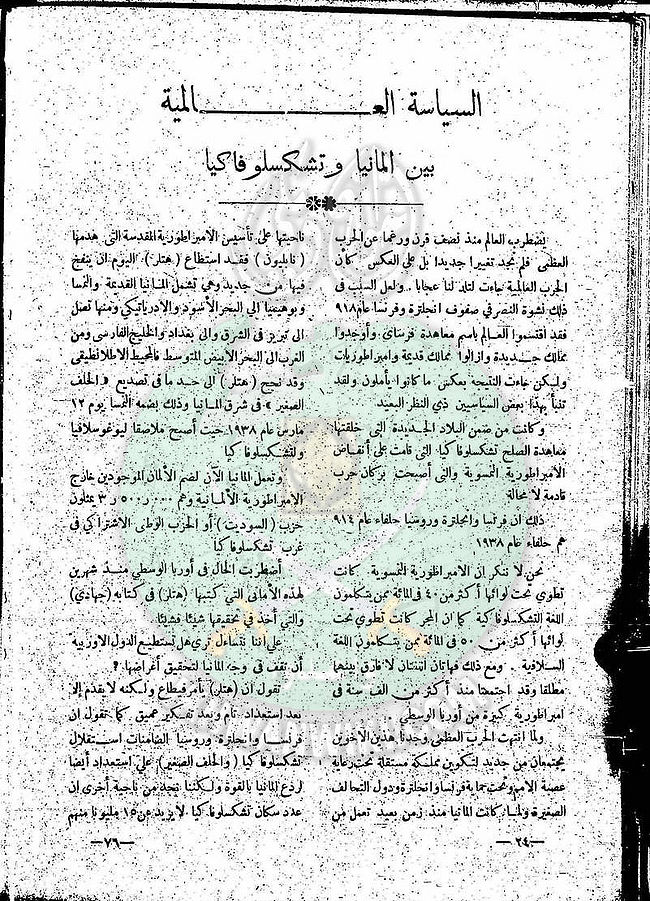 السياسة العـــــــــــالمية
بين المانيا وتشكسلوفاكيا
يضطرب العالم منذ نصف قرن ورغما عن الحرب
العظمى فلم نجد تغييرا جديدا بل على العكس كأن
الحرب العالمية جاءت لتلد لنا عجابا . ولعل السبب فى
ذلك نشوة النصر فى صفوف انجلترة وفرنسا عام ٩١٨
فقد اقتسموا العالم باسم معاهدة فرساى وأوجدوا
ممالك جديدة وازالوا ممالك قديمة وامبراطوريات
ولكن جاءت النتيجة بعكس ما كانوا يأملون ولقد
تنبأ بهذا بعض السياسيين ذي النظر البعيد
وكانت من ضمن البلاد الجديدة التى خلقتها
معاهدة الصلح تشكسلوفاكيا التى قامت على أنقاض
الامبراطورية النمسوية والتى أصبحت بركان حرب
قادمة لا محالة
ذلك ان فرنسا وانجلترة وروسيا حلفاء عام ٩١٤
هم حلفاء عام ١٩٣٨
نحن لا ننكر ان الامبراطورية النمسوية كانت
تطوي تحت لوائها أكثر من ٤٠ فى المائة ممن يتكلمون
اللغة التشكسلوفاكية كما ان المجر كانت تطوي تحت
لوائها أكثر من ٥٠ فى المائة ممن يتكلمون اللغة
السلافية . ومع ذلك فهاتان اثنتان لا فارق بينهما
مطلقا وقد اجتمعتا منذ أكثر من الف سنة فى
امبراطورية كبيرة من أوربا الوسطي
ولما انتهت الحرب العظمى وجدنا هذين الاخوين
يجتمعان من جديد لتكوين مملكة مستقلة تحت رعاية
عصبة الامم وتحت حماية فرنسا وانجلترة ودول التحالف
الصغيرة ولما كانت المانيا منذ زمن بعيد تعمل من
ناحيتها على تأسيس الامبراطورية المقدسة التى هدمها
( نابليون ) فقد استطاع ( هتلر ) اليوم ان ينفخ
فيها من جديد وهي تشمل المانيا القديمة والنمسا
وبوهيميا الى البحر الأسود والادرياتيكي ومنها تصل
الى تبريز فى الشرق والى بغداد والخليج الفارسى ومن
الغرب الى البحر الأبيض المتوسط فالمحيط الاطلانطيقى
وقد نجح ( هتلر ) الى حد ما فى تصديع « الحلف
الصغير » فى شرق المانيا وذلك بضمه النمسا يوم ١٢
مارس عام ١٩٣٨ حيث أصبح ملاصقا ليوغوسلافيا
ولتشكسلوفاكيا
وتعمل المانيا الآن لضم الألمان الموجودين خارج
الامبراطورية الألمانية وهم ٠٠٠ر٥٠٠ر٣ يمثلون
حزب ( السوديت ) أو الحزب الوطنى الاشتراكي فى
غرب تشكسلوفاكيا
أضطربت الحال فى أوربا الوسطي منذ شهرين
لهذه الأماني التي كتبها ( هتلر ) فى كتابه (جهادي)
والتي أخذ فى تحقيقها شيئا فشيئا
على اننا نتساءل ترى هل تستطيع الدول الاوربية
أن تقف فى وجه المانيا لتحقيق أغراضها ؟
تقول ان (هتلر) يأمر فيطاع ولكنه لا يقدم إلا
بعد استعداد تام وبعد تفكير عميق كما تقول ان
فرنسا وانجلترة وروسيا الضامنات استقلال
تشكسلوفاكيا ( والحلف الصغير ) علي استعداد أيضا
لردع المانيا بالقوة ولكننا نجد من ناحية أخرى ان
عدد سكان تشكسلوفاكيا لا يزيد عن ١٥ مليونا منهم
—٢٤—
—٧٦—